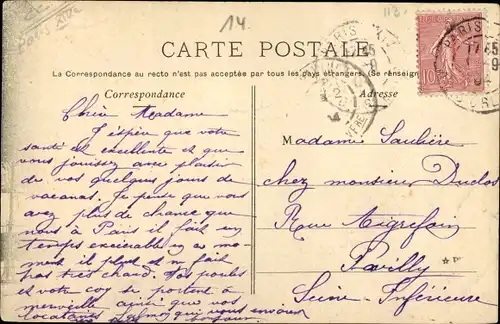 14.
CARTE POSTALE
La Correspondance au recto n'est pas acceptée par tous les pays étrangers. (Se renseign
Correspondance
Adresse
PARIS
10
Chère Madame
J'espère que votre
santé est excellente et que
vous jouissez avec plaisir
de vos quelques jours de
vacances. Je pense que vous
avez plus de chance que
nous à Paris il fait un
temps exécrable en ce mo-
ment il pleut et n fait
pas très chaud. Vos poules
et votre coq se portent à
merveille ainsi que vos
locataires qui vous envoient
bonjour
Madame Saulière
chez monsieur Duclos
Rue Aigrefoin
Pavilly
Seine-Inférieure